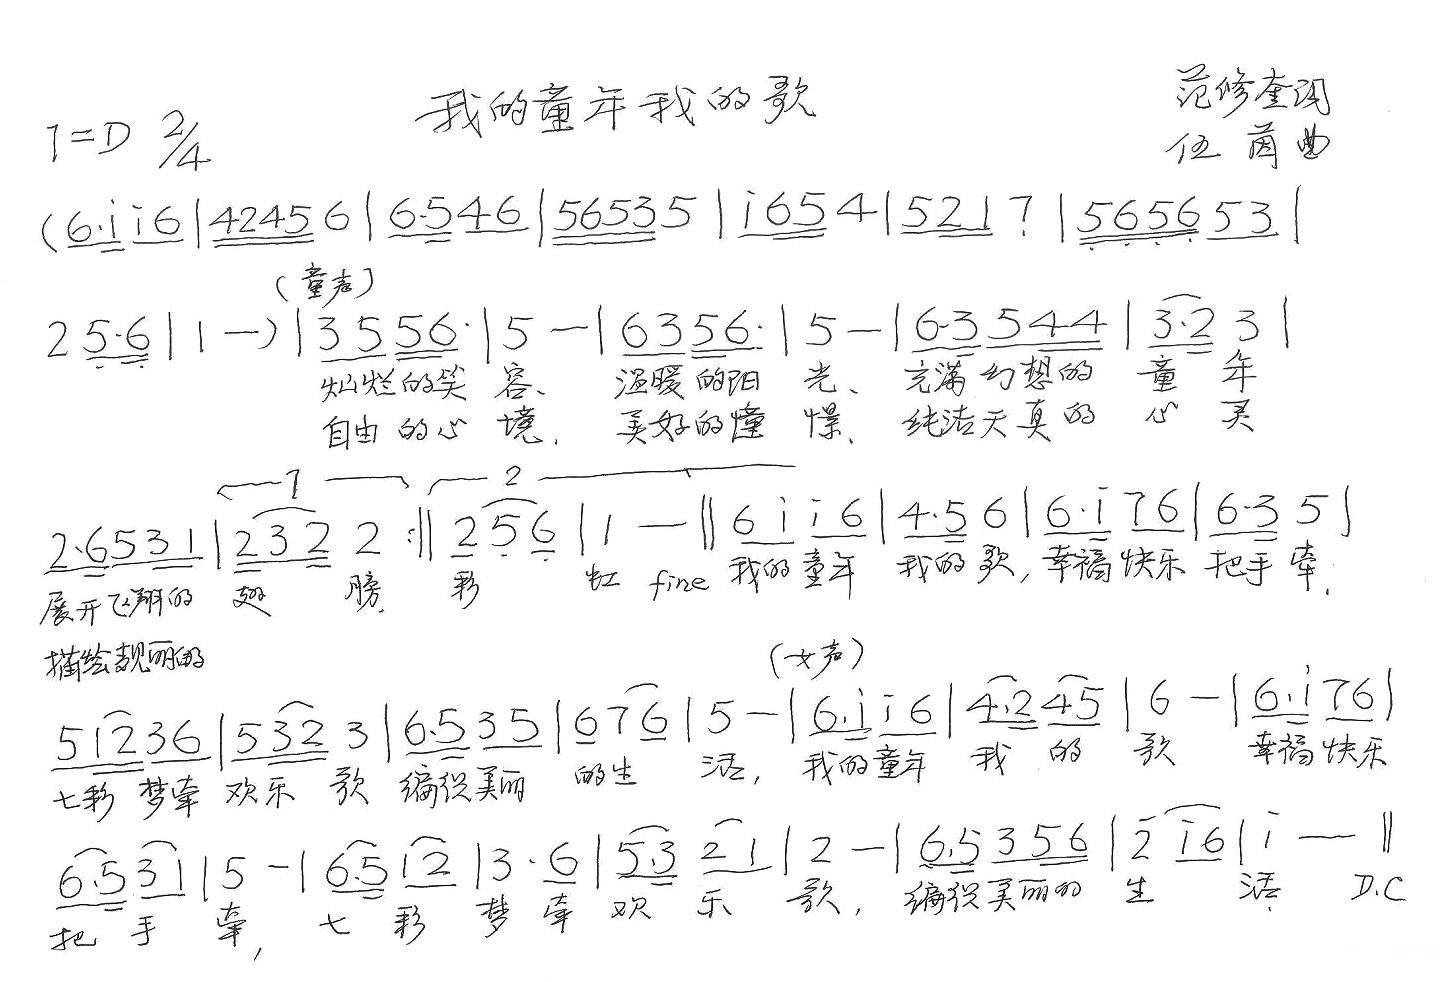 我的童年我的歌
范修奎词
1=D 2/4
伍茵曲
(6·i i6|42456|6·546|56535|i654|5217|565653|
(童声)
2 5·6|1 —)|3556·|5 —|6356·|5 —|6·3544|3·2 3|
灿烂的笑 容、 温暖的阳 光、 充满幻想的 童 年
自由的心 境、 美好的憧 憬、 纯洁天真的 心 灵
1 2
2·6531|232 2:||256|1 —||6i i6|4·56|6·i76|6·3 5|
展开飞翔的 翅 膀. 彩 虹 fine 我的童年 我的歌,幸福快乐 把手牵.
描绘靓丽的
(女声)
51236|532 3|6·535|676|5 —|6·i i6|4·245|6 —|6·i76|
七彩梦牵 欢乐 歌 编织美丽 的生 活, 我的童年 我 的 歌 幸福快乐
6·531|5 —|6·512|3·6|5·3 21|2 —|6·5356|2 i6|i — ||
把 手 牵, 七 彩 梦 牵 欢 乐 歌, 编织美丽的 生 活. D.C